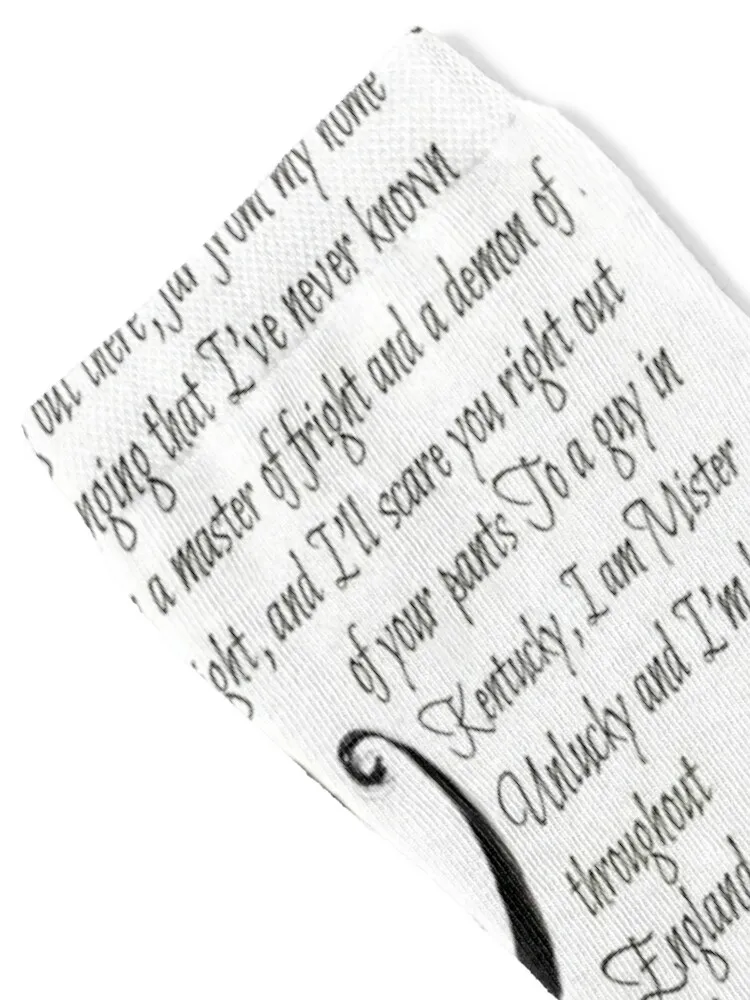 out there, far from my home
nging that I've never known
a master of fright and a demon of
ight, and I'll scare you right out
of your pants To a guy in
Kentucky, I am Mister
Unlucky and I'm
throughout
England